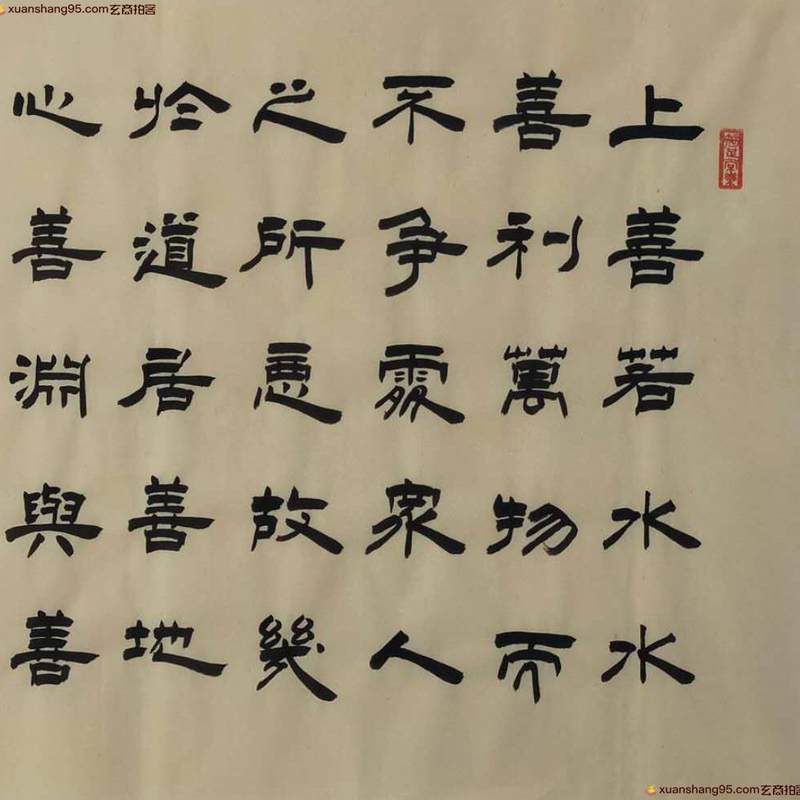 xuanshang95.com玄商拍客
上善若水水
善利萬物而
不争處衆人
之所惡故幾
於道居善地
心善淵與善
xuanshang95.com玄商拍客